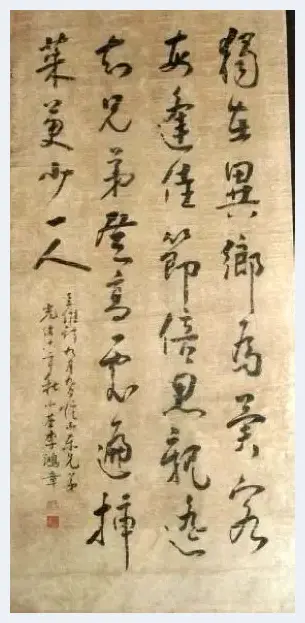 獨在異鄉為異客
每逢佳節倍思親遙
知兄弟登高處遍插
茱萸少一人
王維詩九月九日憶山東兄弟
光緒十年秋少荃李鴻章